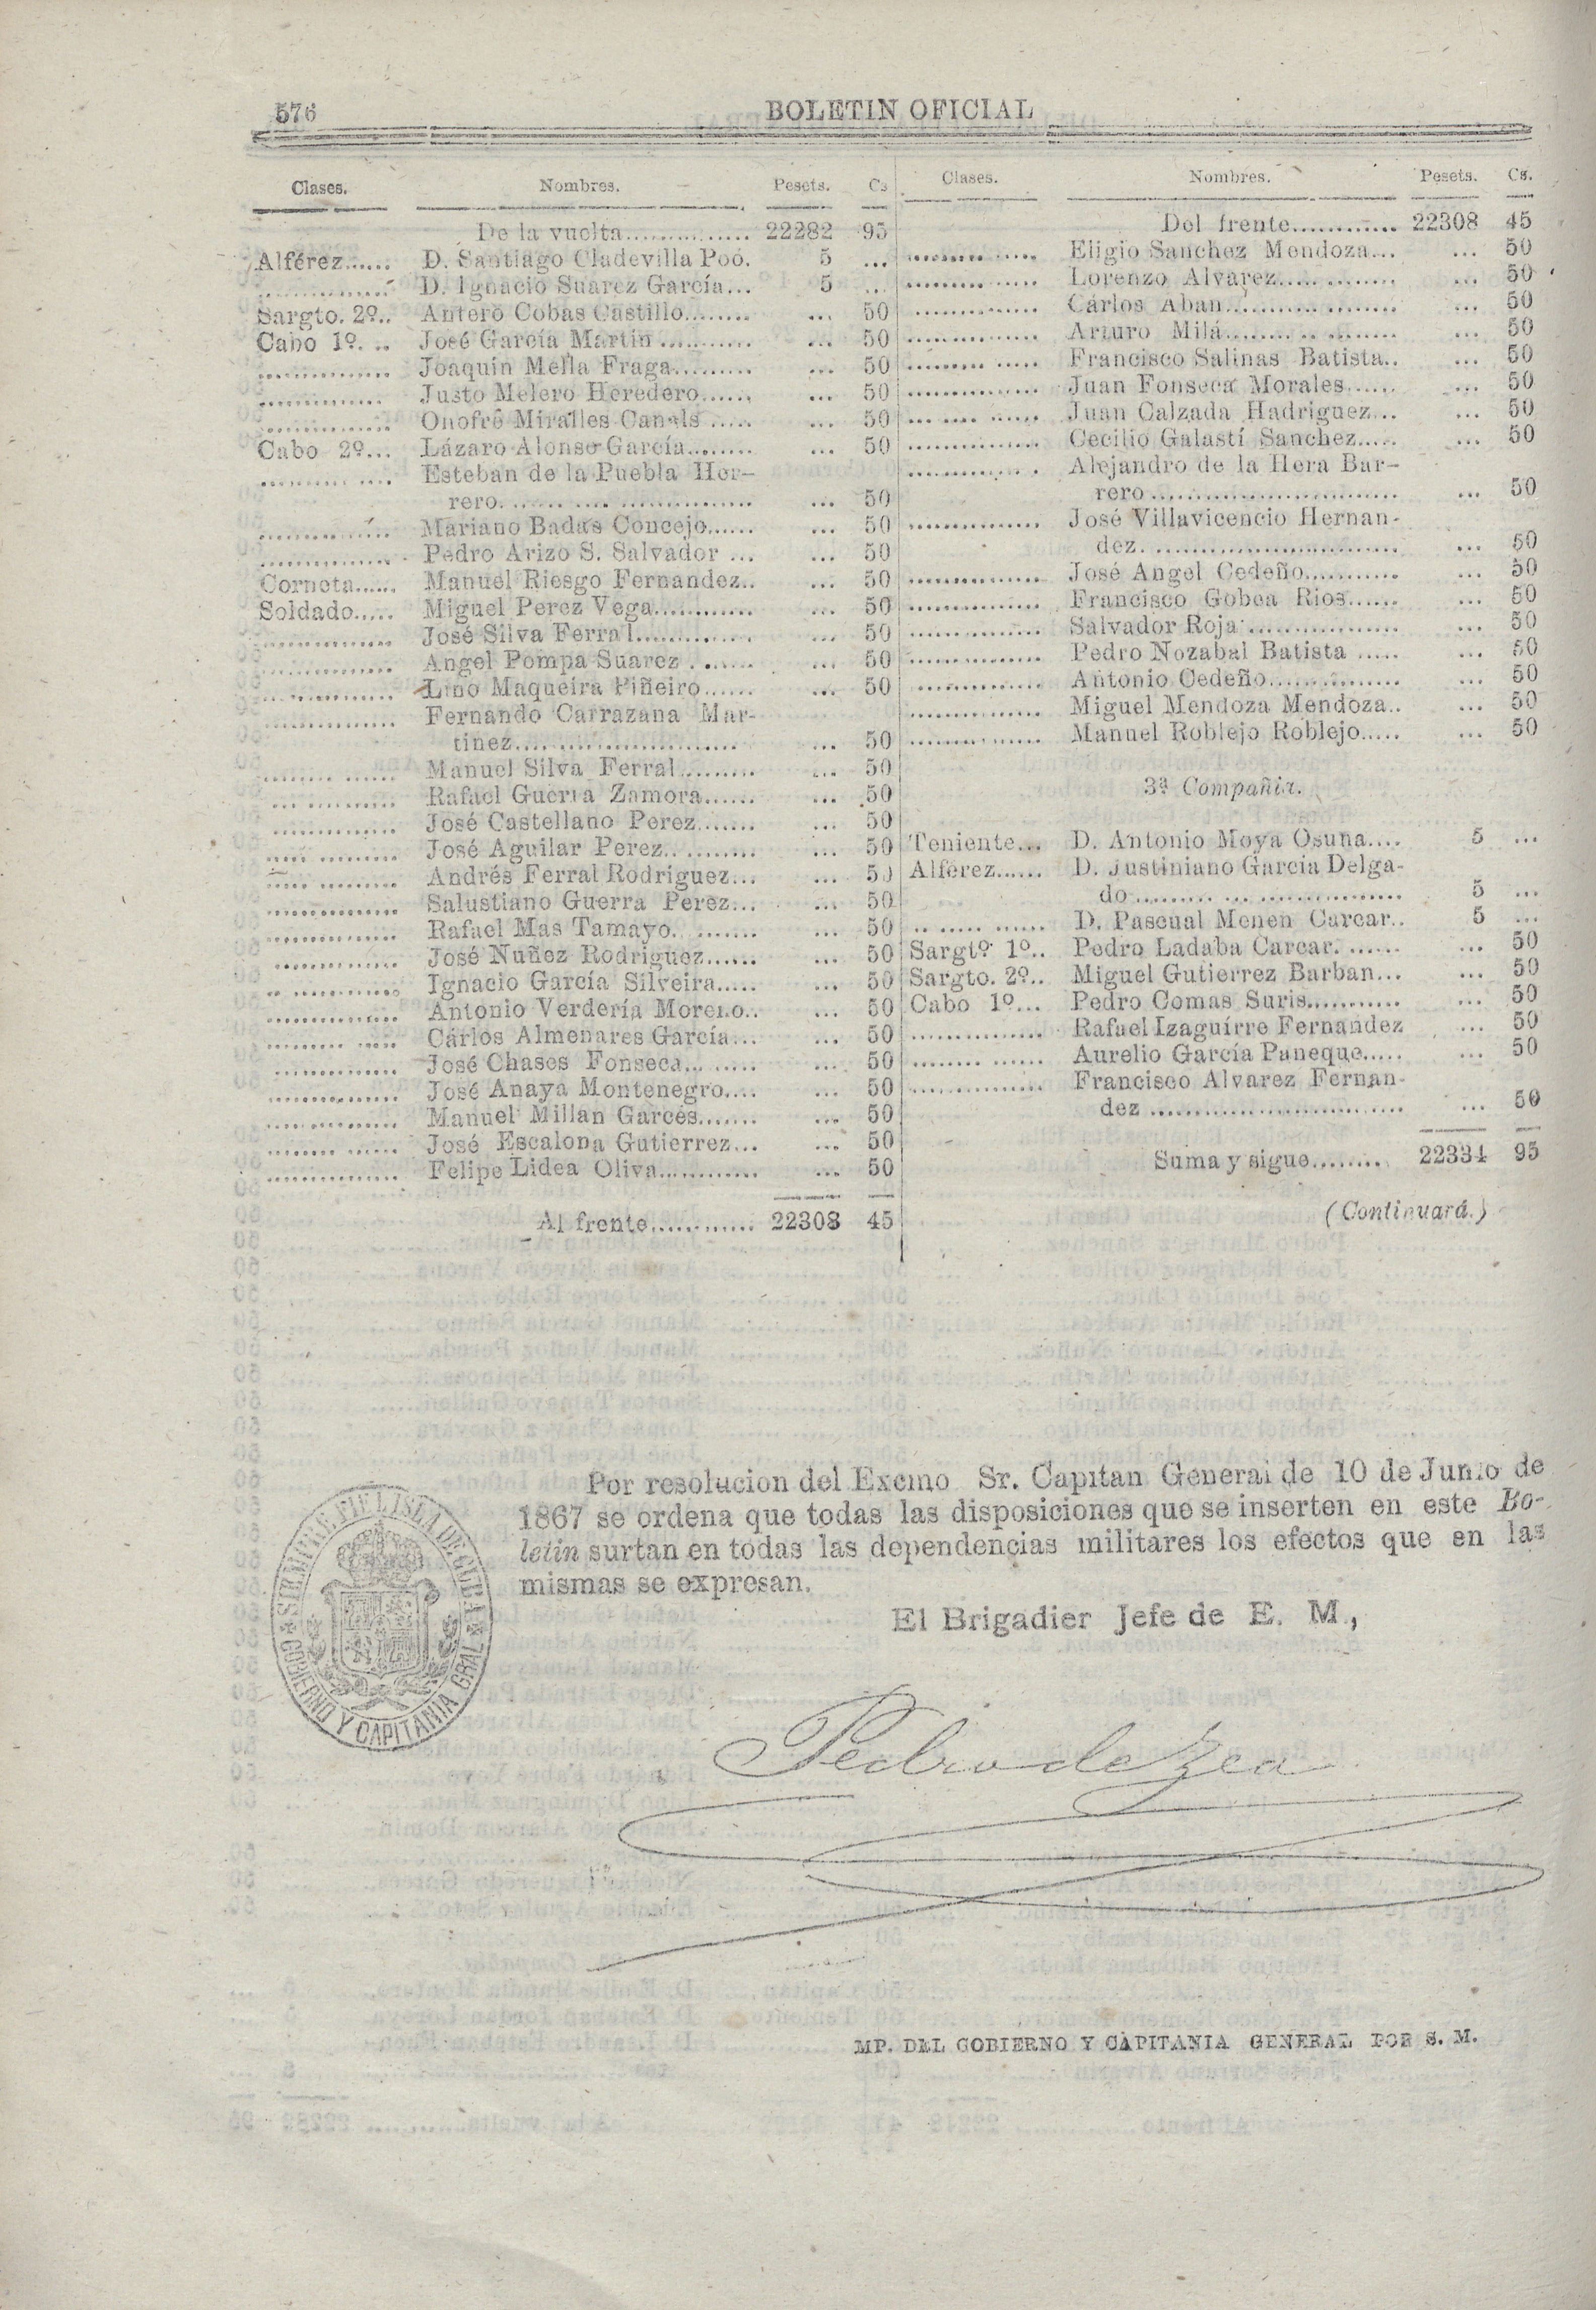 576
BOLETIN OFICIAL
Clases. Nombres. Pesets. Cs
De la vuelta............... 22282 95
Alférez...... D. Santiago Cladevilla Poó. 5 ...
.............. D. Ignacio Suárez García... 5 ...
Sargto. 2º.. Antero Cobas Castillo........ ... 50
Cabo 1º. .. José García Martin ........... ... 50
.............. Joaquín Mella Fraga......... ... 50
............. Justo Melero Heredero...... ... 50
............. Onofre Miralles Canals ..... ... 50
Cabo 2º... Lázaro Alonso García........ ... 50
......... .... Esteban de la Puebla Her-
rero. ..... .. ................ ... 50
.............. Mariano Badas Concejo...... ... 50
.............. Pedro Arizo S. Salvador ... ... 50
Corneta...... Manuel Riesgo Fernandez.. ... 50
Soldado..... Miguel Perez Vega............ ... 50
.............. José Silva Ferral.............. ... 50
.............. Angel Pompa Suarez . ...... ... 50
.. ........... Lino Maqueira Piñeiro...... ... 50
.............. Fernando Carrazana Mar-
tinez.......................... ... 50
....... ...... Manuel Silva Ferral......... ... 50
... .......... Rafael Guerra Zamora...... ... 50
............. José Castellano Perez....... ... 50
..... ......... José Aguilar Perez.. ......... ... 50
..... ......... Andrés Ferral Rodriguez... ... 50
.............. Salustiano Guerra Perez... ... 50
.............. Rafael Mas Tamayo. ........ ... 50
.............. José Nuñez Rodriguez...... ... 50
.. ............ Ignacio García Silveira..... ... 50
.............. Antonio Verdería Moreno.. ... 50
......... ..... Cárlos Almenares García... ... 50
.............. José Chases Fonseca... ..... ... 50
.............. José Anaya Montenegro.... ... 50
.............. Manuel Millan Garcés....... ... 50
........ ...... José Escalona Gutierrez... ... 50
.............. Felipe Lidea Oliva............ ... 50
Al frente............ 22308 45
Clases. Nombres. Pesets. Cs.
Del frente............ 22308 45
........ ..... Eligio Sanchez Mendoza... ... 50
........ ..... Lorenzo Alvarez.............. ... 50
............. Cárlos Aban.................... ... 50
.............. Arturo Milá.................... ... 50
........ ..... Francisco Salinas Batista.. ... 50
.............. Juan Fonseca Morales...... ... 50
... .... ...... Juan Calzada Hadriguez... ... 50
.............. Cecilio Galastí Sanchez..... ... 50
............ . Alejandro de la Hera Bar-
rero ............................ ... 50
.............. José Villavicencio Hernan-
dez. ........................... ... 50
.............. José Angel Cedeño........... ... 50
.............. Francisco Gobea Rios...... ... 50
.............. Salvador Roja ................. ... 50
.............. Pedro Nozabal Batista ..... ... 50
.............. Antonio Cedeño............... ... 50
.............. Miguel Mendoza Mendoza.. ... 50
.............. Manuel Roblejo Roblejo..... ... 50
3ª Compañia.
Teniente... D. Antonio Moya Osuna.... 5 ...
Alférez...... D. Justiniano García Delga-
do......... ... ................ 5 ...
.. ..... ...... D. Pascual Menen Carcar.. 5 ...
Sargtº 1º.. Pedro Ladaba Carcar. ...... ... 50
Sargto. 2º.. Miguel Gutierrez Barban... ... 50
Cabo 1º... Pedro Comas Suris........... ... 50
.............. Rafael Izaguírre Fernandez ... 50
........ ...... Aurelio García Paneque..... ... 50
.............. Francisco Alvarez Fernan-
dez ............................ ... 50
Suma y sigue........ 22334 95
(Continuará.)
Por resolucion del Excmo Sr. Capitan General de 10 de Junio de
1867 se ordena que todas las disposiciones que se inserten en este Bo-
letin surtan en todas las dependencias militares los efectos que en las
mismas se expresan.
El Brigadier Jefe de E. M.,
SIEMPRE FIEL ISLA DE CUBA
GOBIERNO Y CAPITANIA GRAL
Pedro de Zea
MP. DEL GOBIERNO Y CAPITANIA GENERAL POR S. M.